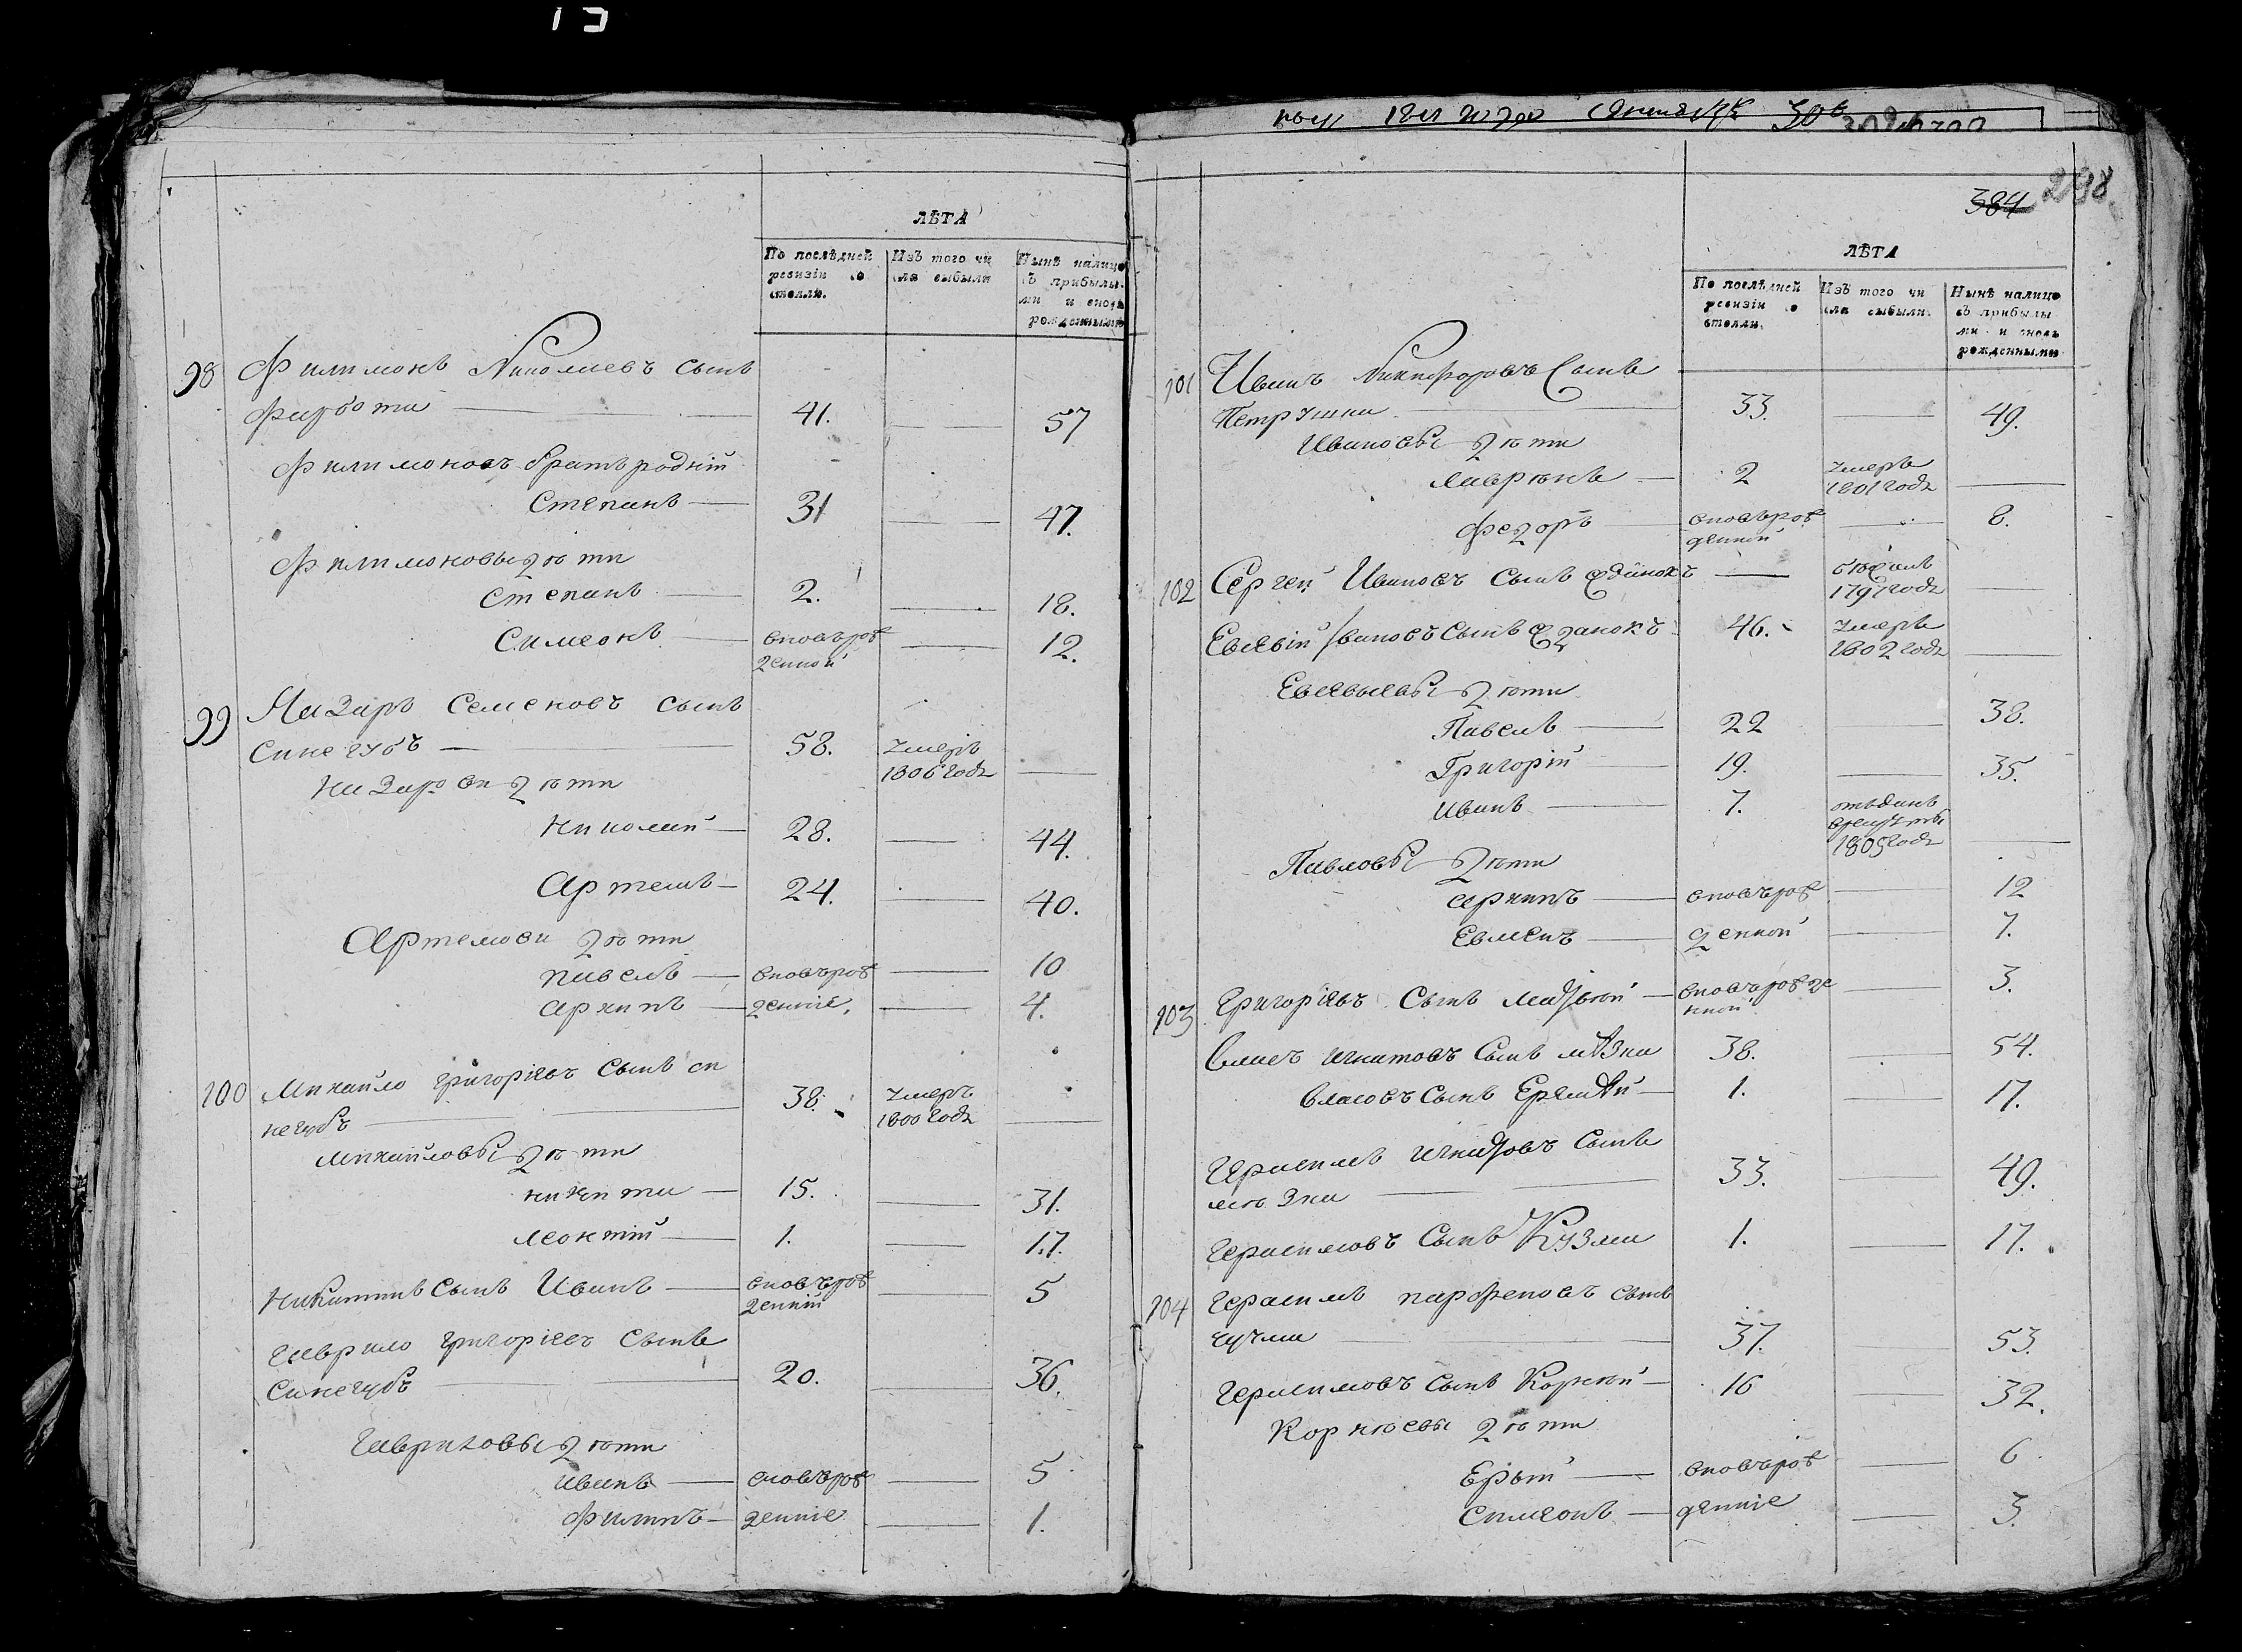 ЛѢТА
По послѣдней ревизіи со стояло.
Изъ того чи сла выбыли
Нынѣ налицо съ прибылы ми и вновь рожденными
98 Филимонъ Николаевъ сынъ
41. 57
Филимоновъ братъ родній
Степанъ 31 47.
Филимоновы дѣти
Степанъ 2. 18.
Симеонъ вновърож денной 12.
99 Назаръ Семеновъ сынъ
Синегубъ 58. умеръ 1806 годꙋ
Назарови дѣти
Николай 28. 44.
Артемъ 24. 40.
Артемови дѣти
Павелъ вновърож 10
Архипъ денніе, 4.
100 Михайло Григоріевъ сынъ си
негубъ 38. умеръ 1800 годꙋ
Михайловы дѣти
Никита 15. 31.
Леонтій 1. 17.
Никитинъ сынъ Иванъ вновърож денній 5
Гаврило Григоріевъ сынъ
Синегубъ 20. 36.
Гавриловы дѣти
Иванъ вновърож 5
Филипъ денніе 1.
384 298
ЛѢТА
По послѣдней ревизіи со стояли.
Изъ того чи сла выбыли.
Нынѣ налицо съ прибылы ми и вновь рожденными
101 Иванъ Никифоровъ Сынъ
Петрушка 33. 49.
Ивановы дѣти
Лаврѣнъ 2 умеръ 1801 годꙋ
Федоръ вновърож денной 8.
102 Сергей Ивановъ сынъ Единокъ бѣжалъ 1797 годꙋ
Евсевій Ивановъ сынъ Единокъ 46. умеръ 1802 годꙋ
Евсевыевы дѣти
Павелъ 22 38.
Григорій 19. 35.
Иванъ 7. отъданъ врекруты 1805 годꙋ
Павловы дѣти
Архипъ вновърож 12
Евменъ денной 7.
103 Григоріевъ Сынъ Матвѣй вновърожде нной 3.
Власъ Игнатовъ Сынъ Мѣзка 38. 54.
Власовъ Сынъ Еремѣй 1. 17.
Герасимъ Игнатовъ Сынъ
Мѣзка 33. 49.
Герасимовъ Сынъ Кузма 1. 17.
104 Герасимъ Парфеновъ сынъ
Чучма 37. 53.
Герасимовъ Сынъ Корнѣй 16 32.
Корнѣевы дѣти
вновърож 6
Симеонъ денніе 3.